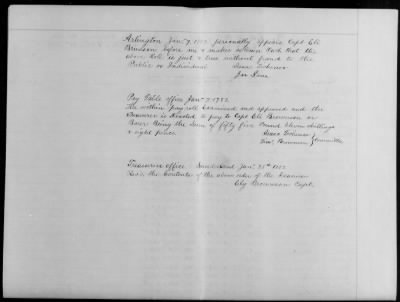 Arlington Jany 7, 1782 personally appears Capt Eli
Brownson before me & makes solemn Oath that the
above Role is just & true without fraud to the
Public or Individual
Pay Table office Jany 7 1782
The within pay roll Examined and approved and the
Treasurer is directed to pay to Capt Eli Brownson or
Bearer Being the Sum of fifty five Pound Eleven shillings
& eight pence
Committee
Treasurers office Sunderland Jany 25th 1782
Recd the Contents of the above order of the Treasurer
Ely Brownson Capt.